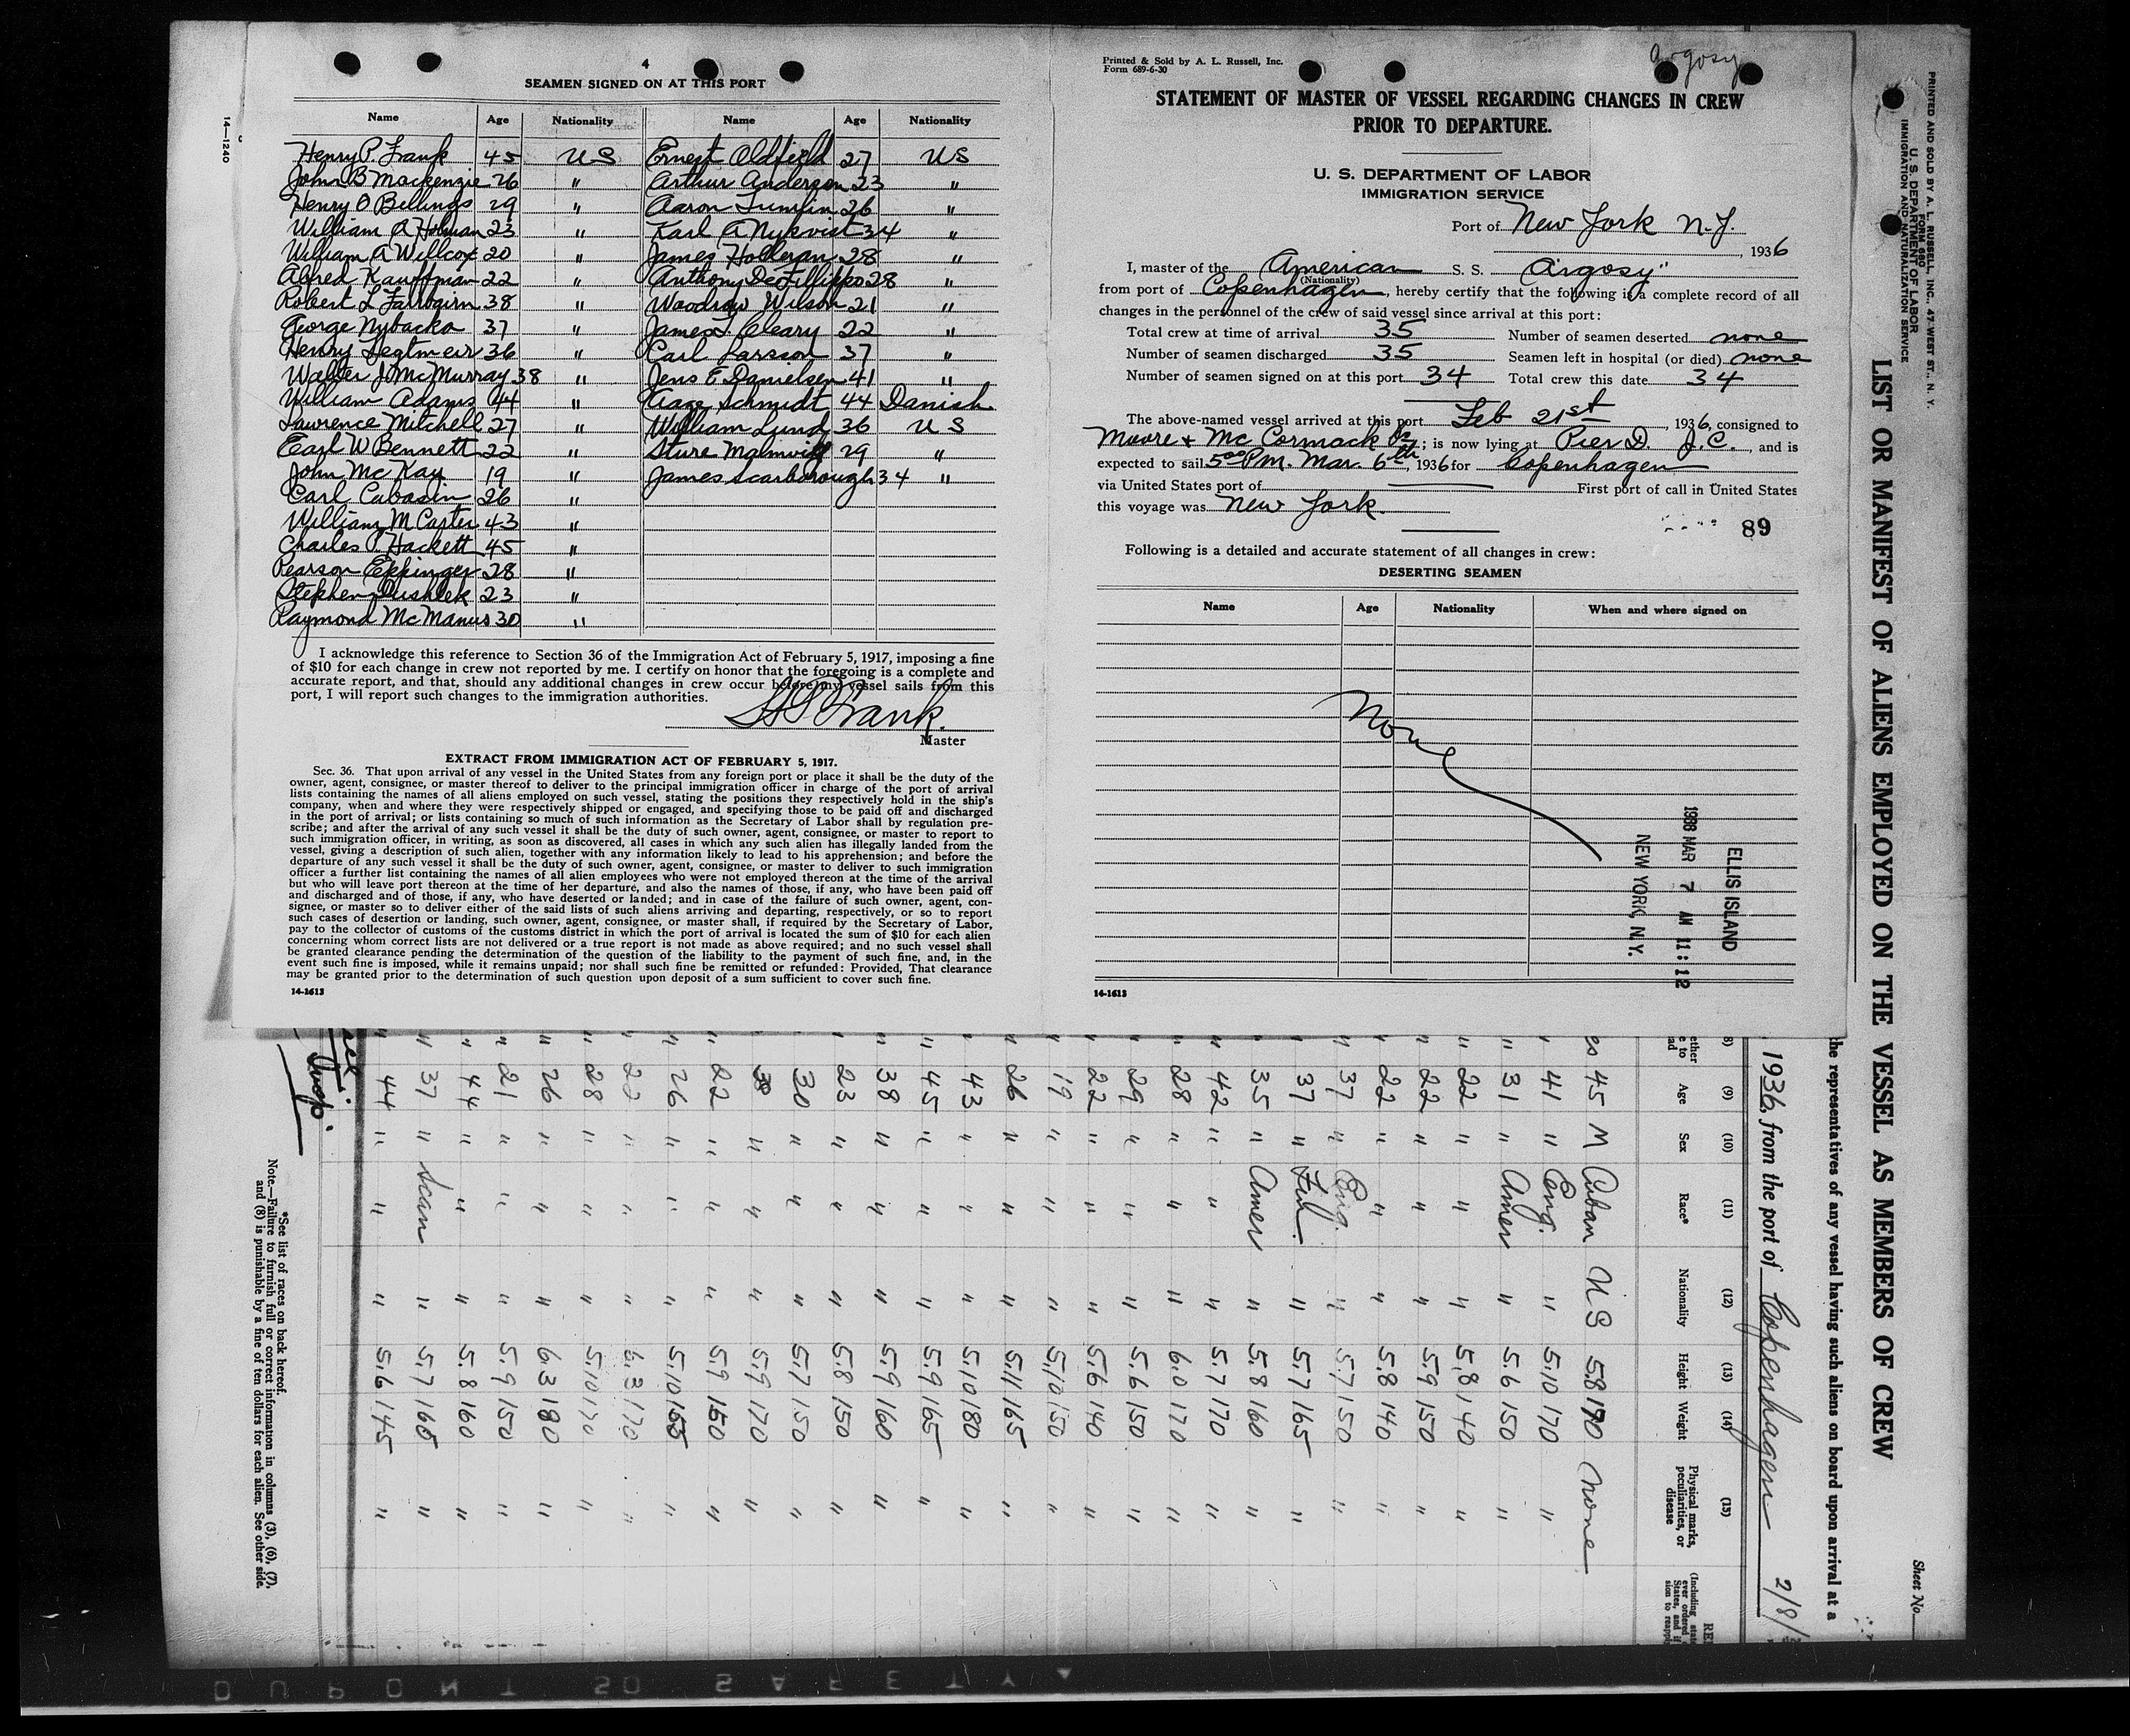 4
SEAMEN SIGNED ON AT THIS PORT
Name Age Nationality Name Age Nationality
Henry P. Frank 45 US Ernest Oldfield 27 US
John B Mackenzie 26 " Arthur Anderson 23 "
Henry O Bellings 29 " Aaron 26 "
William A Holman 23 " Karl A Nykvist 34 "
William A Willcox 20 " James Holleran 28 "
Alfred Kauffman 22 " Anthony DeFillippo 28 "
Robert L Fairbairn 38 " Woodrow Wilson 21 "
George Nybacka 37 " James J. Cleary 22 "
Henry Segtmeir 36 " Carl Larsson 37 "
Walter J McMurray 38 " Jens E Danielsen 41 "
William Adams 44 " Aage Schmidt 44 Danish
Lawrence Mitchell 27 " William Lund 36 US
Earl W Bennett 22 " Sture Malmvig 29 "
John McKay 19 " James Scarborough 34 "
Carl Cabasin 26 "
William McCarter 43 "
Charles P. Hackett 45 "
Pearson Eppinger 28 "
Stephen Dushlek 23 "
Raymond McManus 30 "
I acknowledge this reference to Section 36 of the Immigration Act of February 5, 1917, imposing a fine
of $10 for each change in crew not reported by me. I certify on honor that the foregoing is a complete and
accurate report, and that, should any additional changes in crew occur before my vessel sails from this
port, I will report such changes to the immigration authorities.
H P Frank.
Master
EXTRACT FROM IMMIGRATION ACT OF FEBRUARY 5, 1917.
Sec. 36. That upon arrival of any vessel in the United States from any foreign port or place it shall be the duty of the
owner, agent, consignee, or master thereof to deliver to the principal immigration officer in charge of the port of arrival
lists containing the names of all aliens employed on such vessel, stating the positions they respectively hold in the ship's
company, when and where they were respectively shipped or engaged, and specifying those to be paid off and discharged
in the port of arrival; or lists containing so much of such information as the Secretary of Labor shall by regulation pre-
scribe; and after the arrival of any such vessel it shall be the duty of such owner, agent, consignee, or master to report to
such immigration officer, in writing, as soon as discovered, all cases in which any such alien has illegally landed from the
vessel, giving a description of such alien, together with any information likely to lead to his apprehension; and before the
departure of any such vessel it shall be the duty of such owner, agent, consignee, or master to deliver to such immigration
officer a further list containing the names of all alien employees who were not employed thereon at the time of the arrival
but who will leave port thereon at the time of her departure, and also the names of those, if any, who have been paid off
and discharged and of those, if any, who have deserted or landed; and in case of the failure of such owner, agent, con-
signee, or master so to deliver either of the said lists of such aliens arriving and departing, respectively, or so to report
such cases of desertion or landing, such owner, agent, consignee, or master shall, if required by the Secretary of Labor,
pay to the collector of customs of the customs district in which the port of arrival is located the sum of $10 for each alien
concerning whom correct lists are not delivered or a true report is not made as above required; and no such vessel shall
be granted clearance pending the determination of the question of the liability to the payment of such fine, and, in the
event such fine is imposed, while it remains unpaid; nor shall such fine be remitted or refunded: Provided, That clearance
may be granted prior to the determination of such question upon deposit of a sum sufficient to cover such fine.
14-1613
14-1240
Argosy
Printed & Sold by A. L. Russell, Inc.
Form 689-6-30
STATEMENT OF MASTER OF VESSEL REGARDING CHANGES IN CREW
PRIOR TO DEPARTURE.
U. S. DEPARTMENT OF LABOR
IMMIGRATION SERVICE
Port of New York N.Y.
, 1936
I, master of the American S. S. "Argosy"
(Nationality)
from port of Copenhagen, hereby certify that the following is a complete record of all
changes in the personnel of the crew of said vessel since arrival at this port:
Total crew at time of arrival 35 Number of seamen deserted none
Number of seamen discharged 35 Seamen left in hospital (or died) none
Number of seamen signed on at this port 34 Total crew this date 34
The above-named vessel arrived at this port Feb 21st, 1936, consigned to
Moore & McCormack Co; is now lying at Pier D. J.C., and is
expected to sail 5 00 P.M. Mar. 6th, 1936 for Copenhagen
via United States port of First port of call in United States
this voyage was New York.
89
Following is a detailed and accurate statement of all changes in crew:
DESERTING SEAMEN
Name Age Nationality When and where signed on
None
ELLIS ISLAND
1936 MAR 7 AM 11:12
NEW YORK, N.Y.
14-1613
PRINTED AND SOLD BY A. L. RUSSELL, INC., 47 WEST ST., N. Y.
FORM 680
U. S. DEPARTMENT OF LABOR
IMMIGRATION AND NATURALIZATION SERVICE
Sheet No.
LIST OR MANIFEST OF ALIENS EMPLOYED ON THE VESSEL AS MEMBERS OF CREW
the representatives of any vessel having such aliens on board upon arrival at a
1936, from the port of Copenhagen 2/8/
(9) (10) (11) (12) (13) (14) (15)
Age Sex Race* Nationality Height Weight Physical marks, peculiarities, or disease
45 M Cuban US 5.8 170 None
" 41 " Eng. " 5.10 170 "
" 31 " Amer " 5.6 150 "
" 22 " " " 5.8 140 "
" 22 " " " 5.9 150 "
" 22 " " " 5.8 140 "
" 37 " Eng. " 5.7 150 "
" 37 " Fin. " 5.7 165 "
" 35 " Amer " 5.8 160 "
" 42 " " " 5.7 170 "
" 28 " " " 6.0 170 "
" 29 " " " 5.6 150 "
" 22 " " " 5.6 140 "
" 19 " " " 5.10 150 "
" 26 " " " 5.11 165 "
" 43 " " " 5.10 180 "
" 45 " " " 5.9 165 "
" 38 " " " 5.9 160 "
" 23 " " " 5.8 150 "
" 30 " " " 5.7 150 "
" " " " 5.9 170 "
" 22 " " " 5.9 150 "
" 26 " " " 5.10 165 "
" 22 " " " 6.3 170 "
" 28 " " " 5.10 170 "
" 26 " " " 6.3 180 "
" 21 " " " 5.9 150 "
" 44 " " " 5.8 160 "
" 37 " Scan " 5.7 165 "
" 44 " " " 5.6 145 "
Insp.
*See list of races on back hereof.
Note.—Failure to furnish full or correct information in columns (3), (6), (7),
and (8) is punishable by a fine of ten dollars for each alien. See other side.
DUPONT SO SAFETY